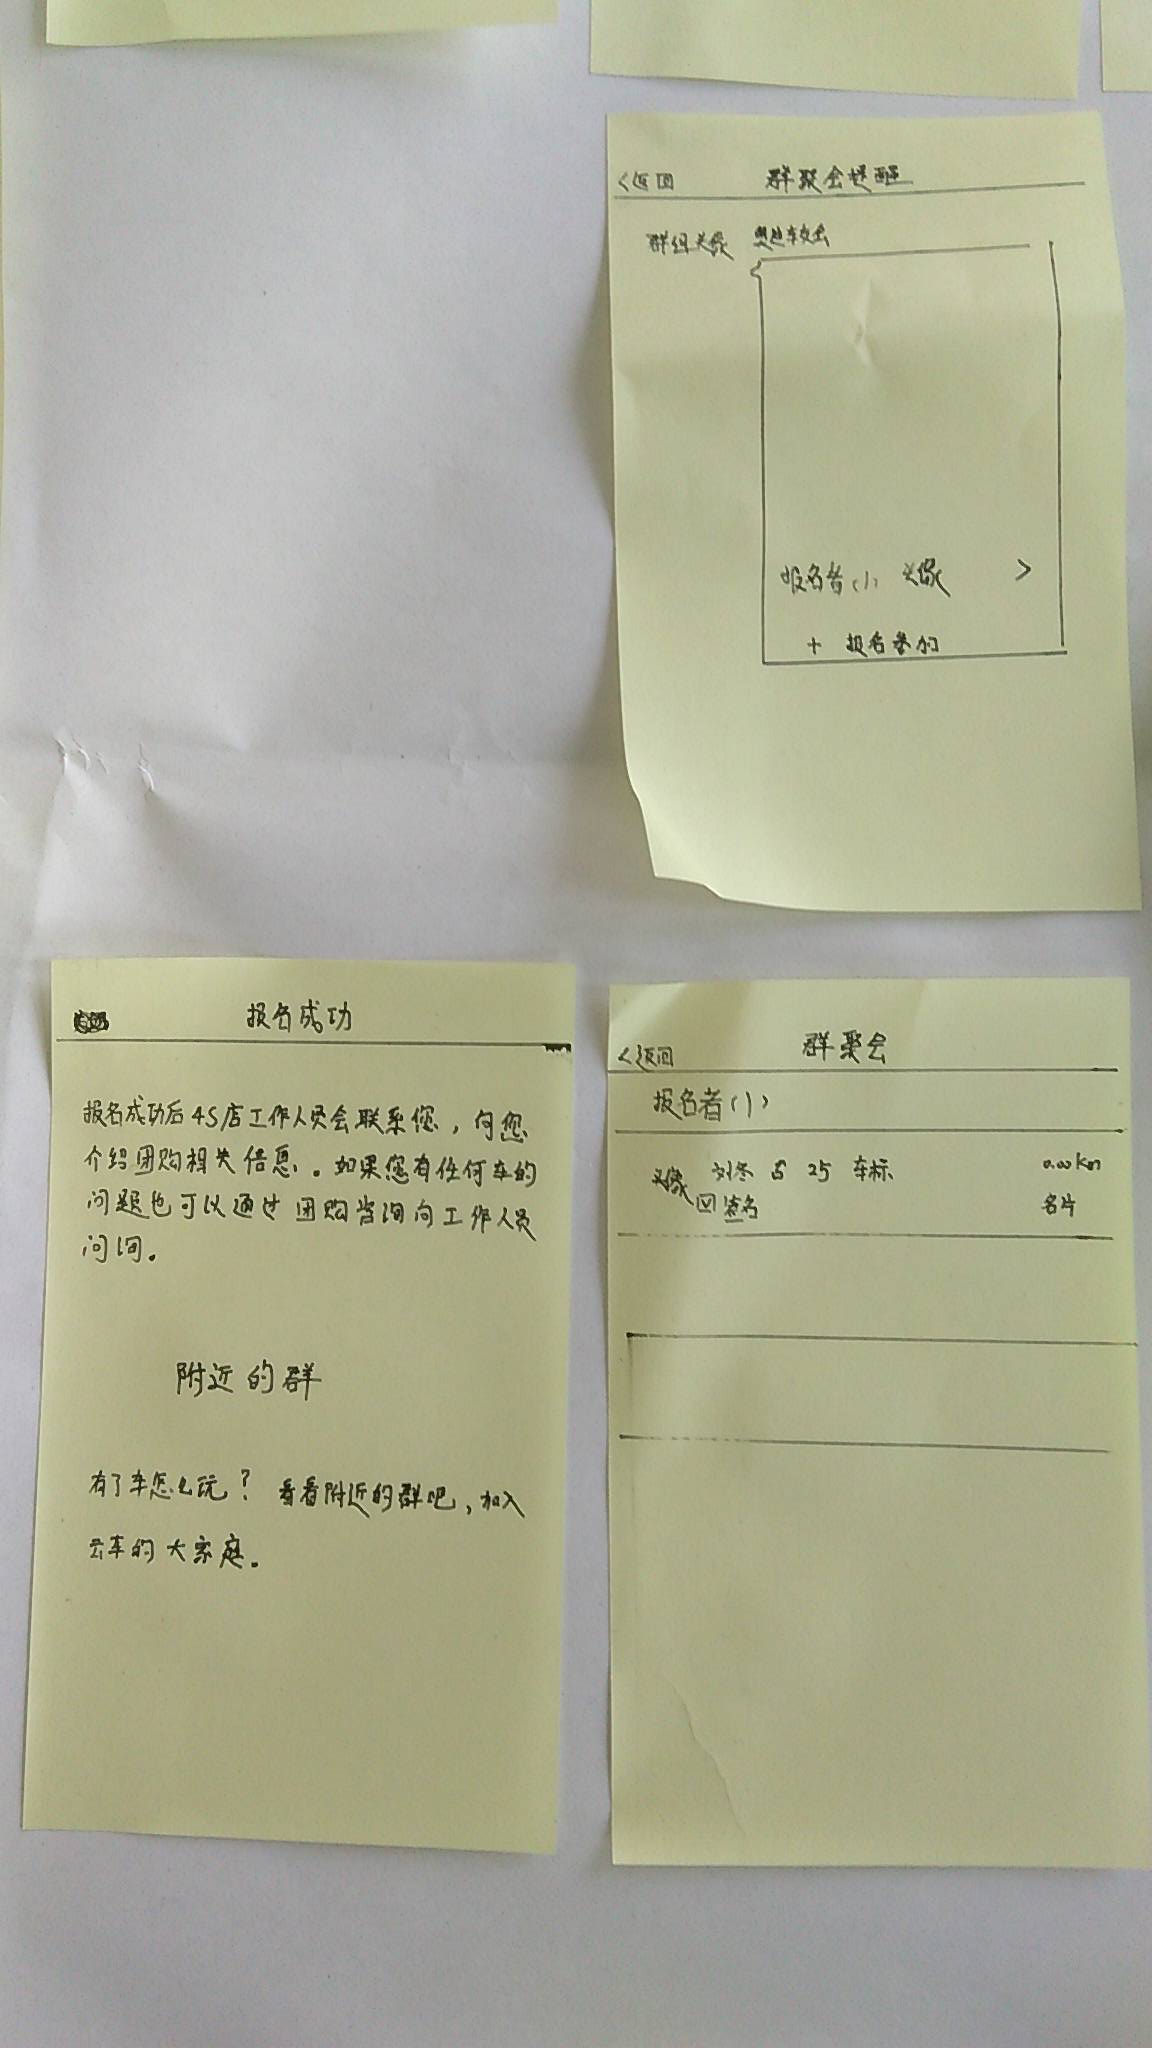 <返回 群聚会提醒
群组头像 奥迪车友会
报名者(1) 头像 >
+ 报名参加
报名成功
报名成功后4S店工作人员会联系您，向您
介绍团购相关信息。如果您有任何车的
问题也可以通过团购咨询向工作人员
问询。
附近的群
有了车怎么玩？看看附近的群吧，加入
云车的大家庭。
<返回 群聚会
报名者(1)
头像 刘冬 25 车标 0.00km
签名 名片